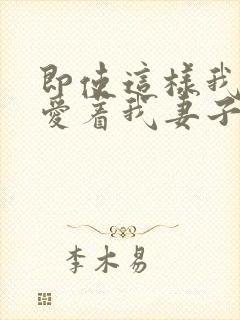 即使這樣我
愛著我妻子
李木易